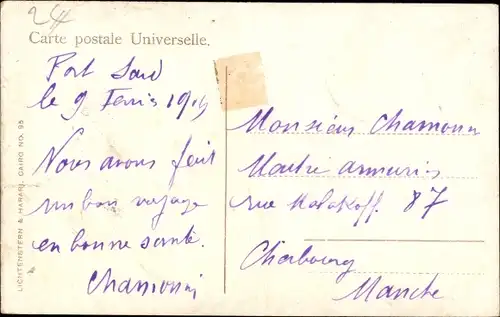 24
Carte postale Universelle.
Port Said
le 9 Fevrier 19
Nous avons fait
un bon voyage
en bonne santé.
Chamonin
Monsieur Chamonin
Maitre armurier
rue Malakoff. 87
Cherbourg
Manche
LICHTENSTERN & HARARI, CAIRO NO. 95